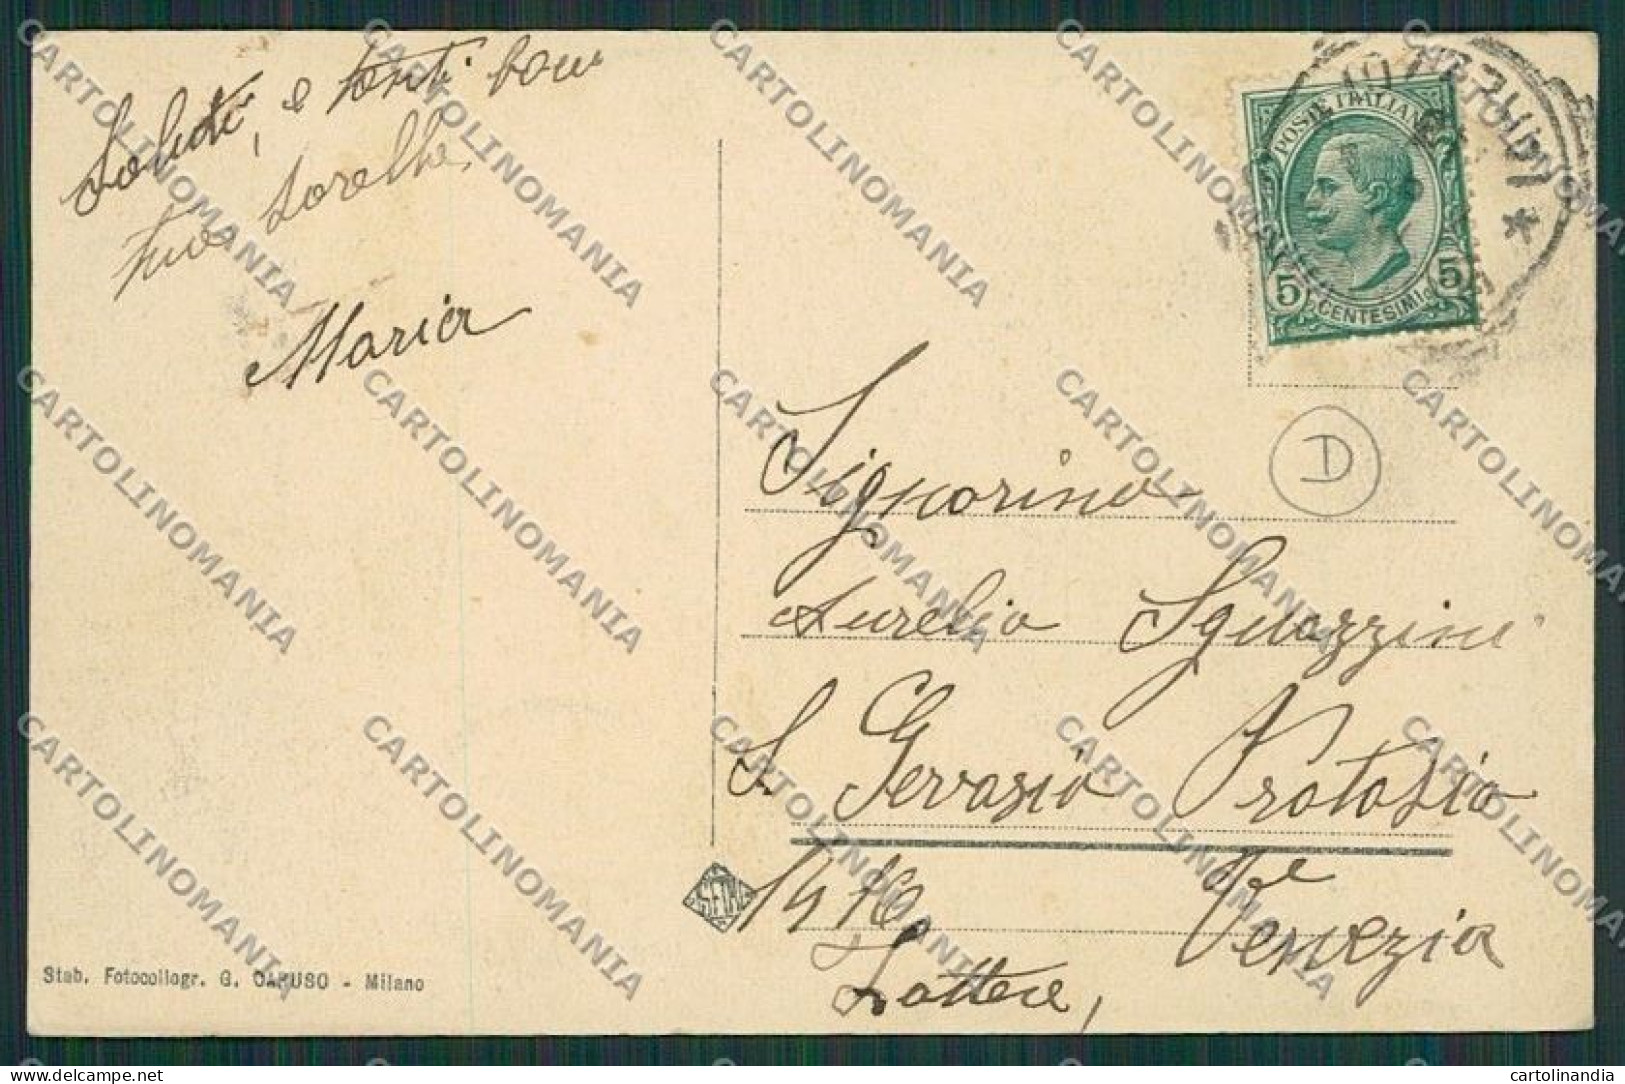 Saluti, e tanti baci
tue sorelle,
Maria
POSTE ITALIANE
5 CENTESIMI 5
D
Signorino
Aurelio Sguazzini
S. Gervasio Protasio
1476
Venezia
Zattere,
Stab. Fotocollogr. G. CARUSO - Milano
CARTOLINOMANIA
delcampe.net
cartolinandia